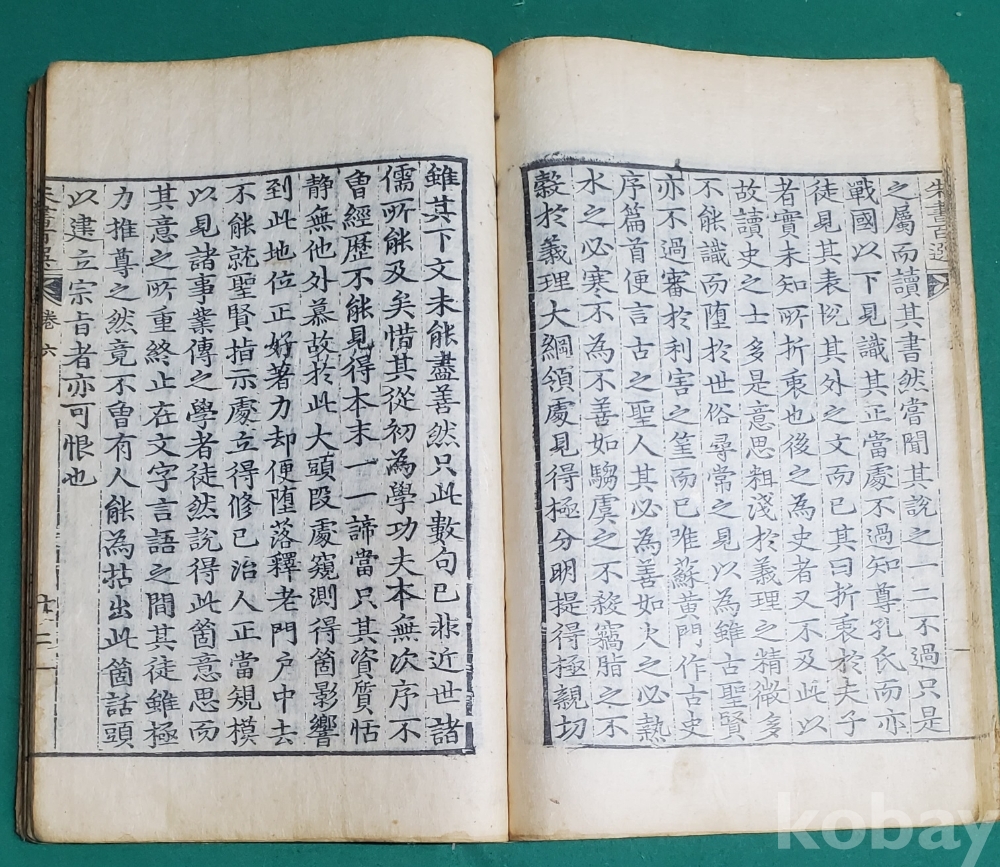 朱書百選
之屬而讀其書然嘗聞其說之一二不過只是
戰國以下見識其正當處不過知尊孔氏而亦
徒見其表悅其外之文而已其曰折衷於夫子
者實未知所折衷也後之為史者又不及此以
故讀史之士多是意思粗淺於義理之精微多
不能識而墮於世俗尋常之見以為雖古聖賢
亦不過審於利害之筭而已唯蘇黃門作古史
序篇首便言古之聖人其必為善如火之必熱
水之必寒不為不善如騶虞之不殺竊脂之不
糓於義理大綱領處見得極分明提得極親切
雖其下文未能盡善然只此數句已非近世諸
儒所能及矣惜其從初為學功夫本無次序不
曾經歷不能見得本末一一諦當只其資質恬
靜無他外慕故於此大頭段處窺測得箇影響
到此地位正好著力却便墮落釋老門户中去
不能就聖賢指示處立得修己治人正當䂓模
以見諸事業傳之學者徒然說得此箇意思而
其意之所重終止在文字言語之間其徒雖極
力推尊之然竟不曾有人能為拈出此箇話頭
以建立宗旨者亦可恨也
朱書百選 卷六
kobay